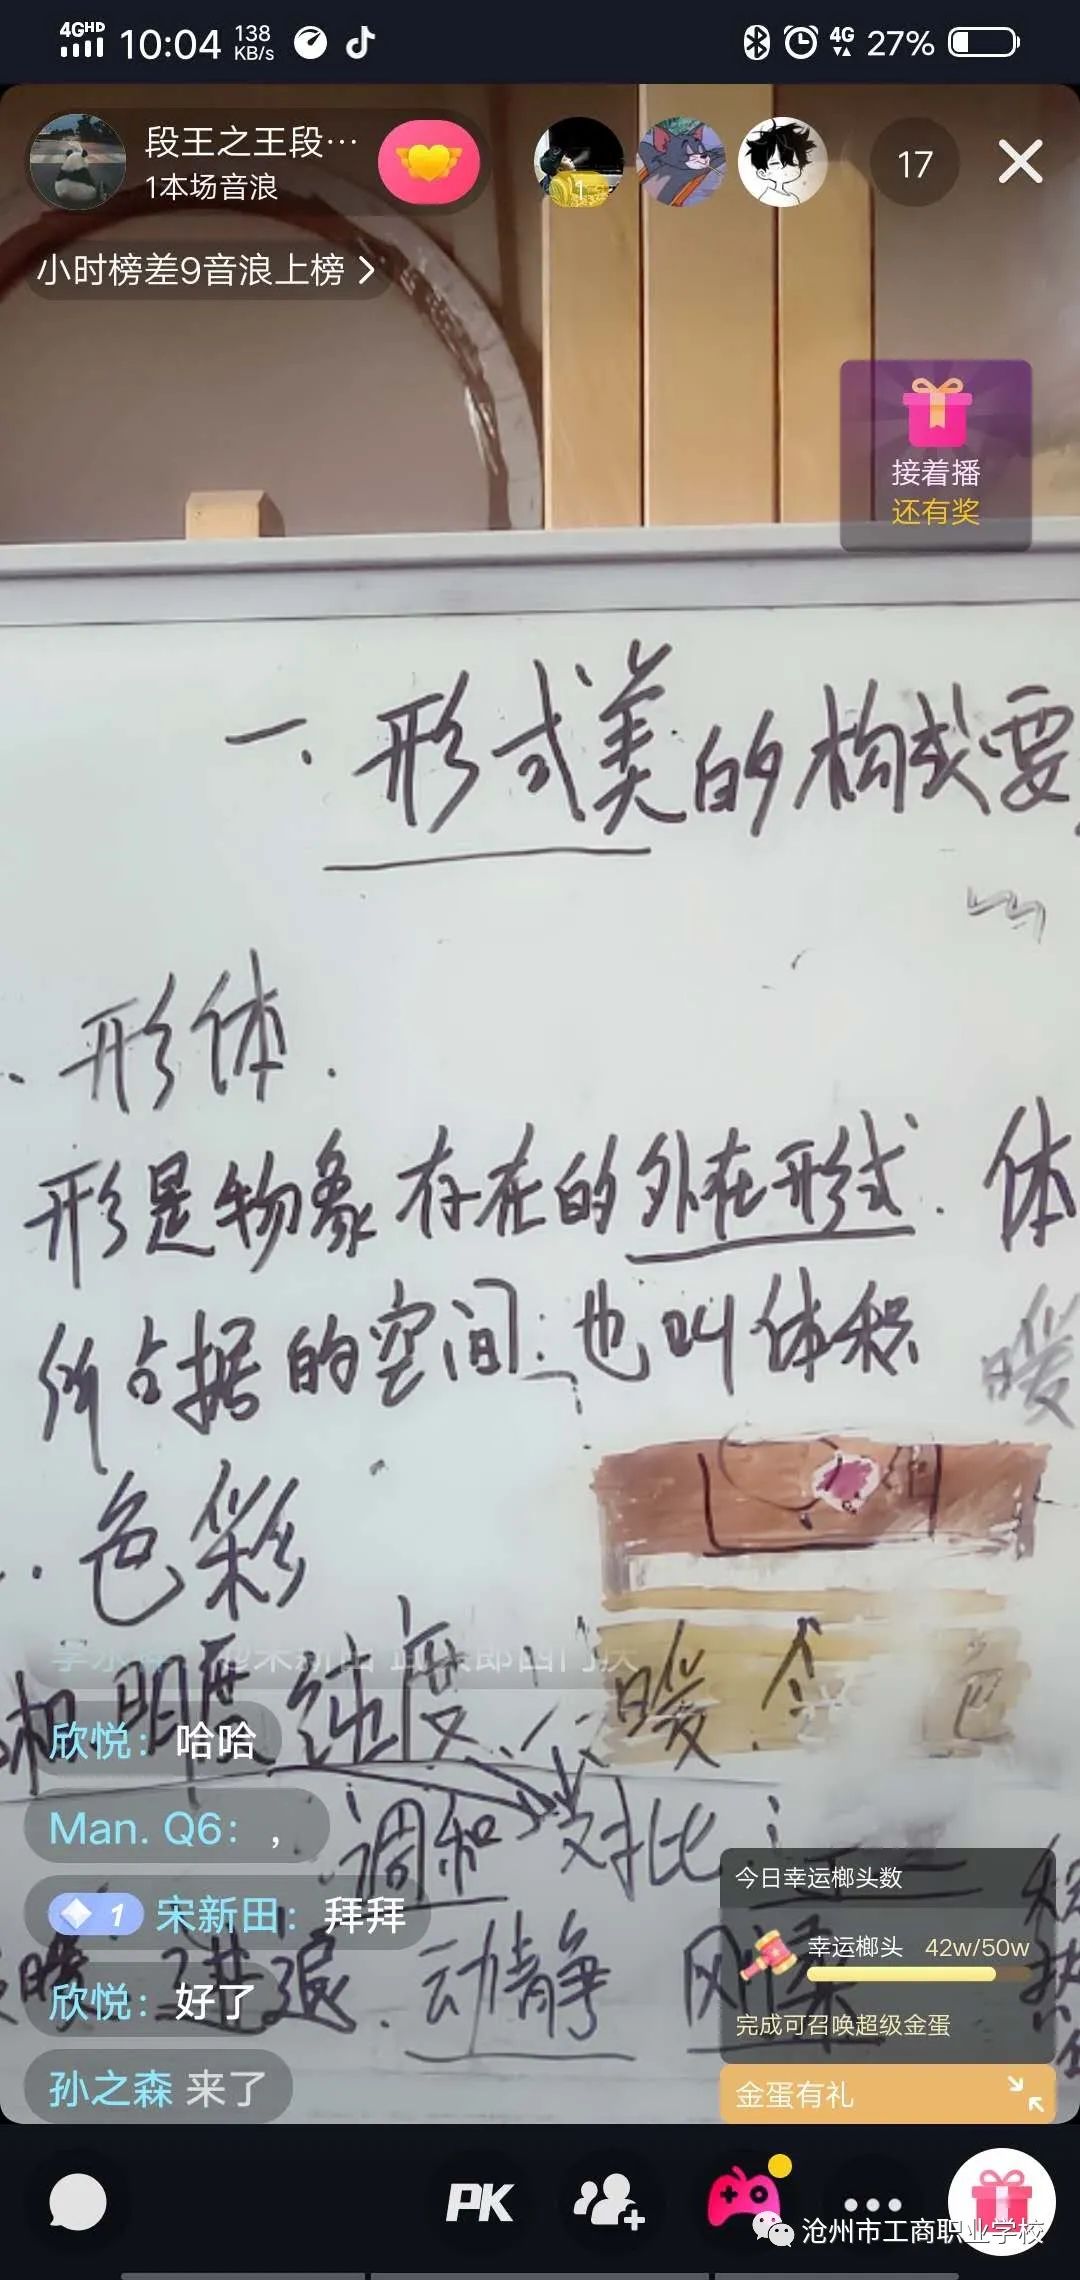 4GHD 10:04 138 KB/s 4G 27%
段王之王段…
1本场音浪
1
17
小时榜差9音浪上榜
接着播
还有奖
一.形式美的构成要
形体.
形是物象存在的外在形式. 体
所占据的空间:也叫体积
暖
色彩
相.明度.纯度. 暖. 色
欣悦：哈哈
Man. Q6：，
调和 对比
1 宋新田：拜拜
进退.动静 刚柔
欣悦：好了
孙之森 来了
今日幸运榔头数
幸运榔头 42w/50w
完成可召唤超级金蛋
金蛋有礼
PK
沧州市工商职业学校